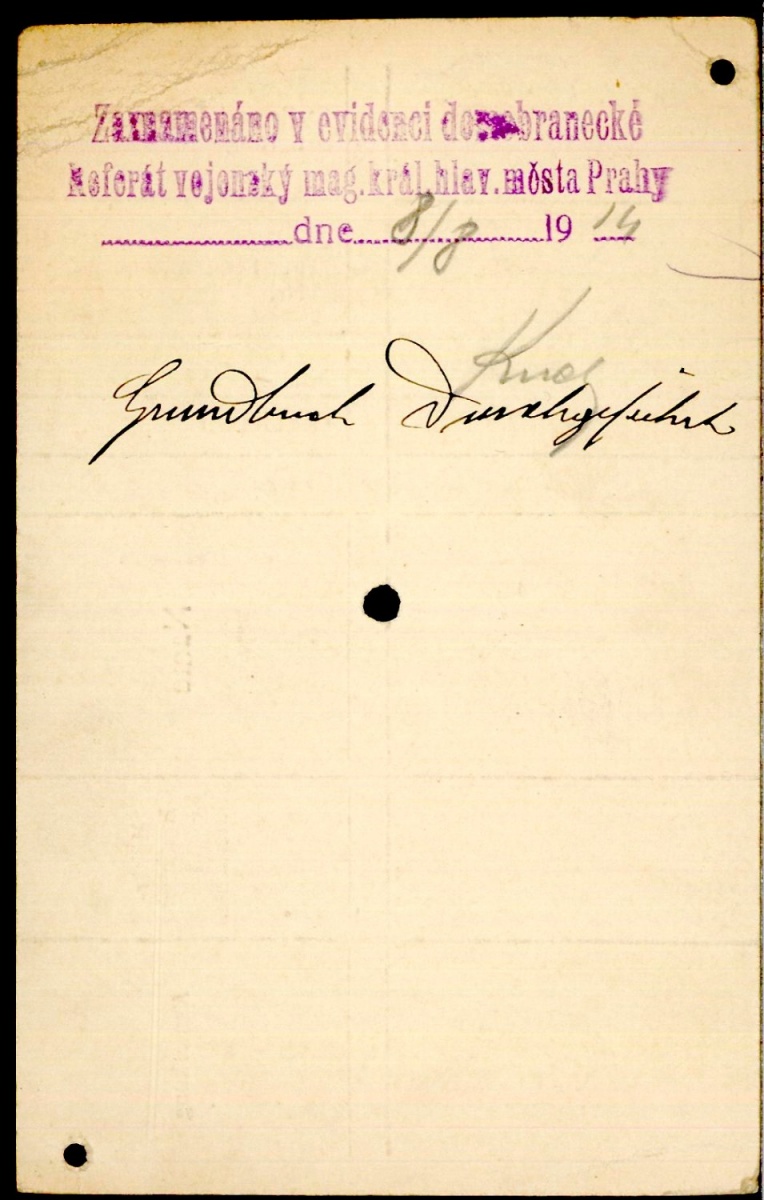 Zaznamenáno v evidenci domobranecké
Referát vojenský mag. král. hlav. města Prahy
dne 8/8 1914
Grundbuch Durchgeführt